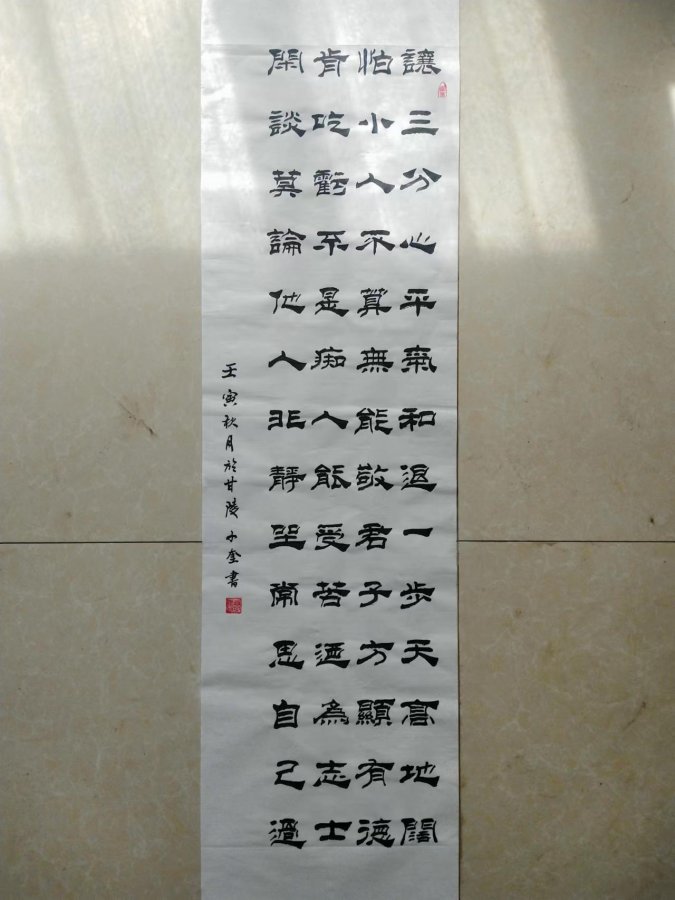 讓三分心平氣和退一步天高地闊
怕小人不算無能敬君子方顯有德
肯吃虧不是痴人能受苦迺為志士
閑談莫論他人非靜坐常思自己過
壬寅秋月於甘陵 小奎書